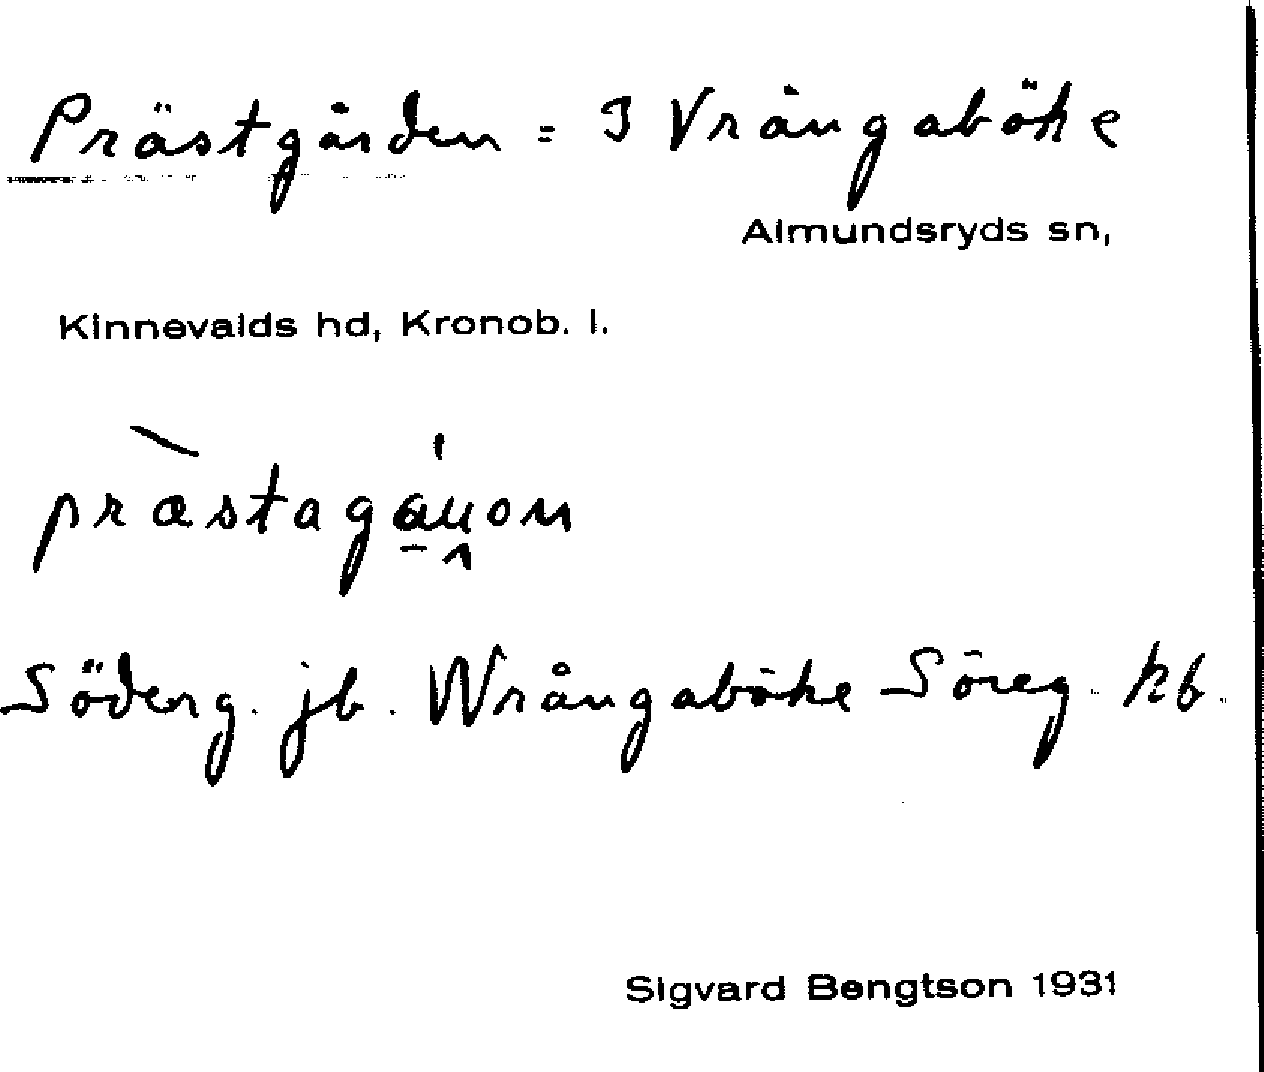 Prästgården = I Vrångaböke
Almundsryds sn,
Kinnevalds hd, Kronob. l.
Söderg. jb. Wrångaböke Söreg. kb.
Sigvard Bengtson 1931